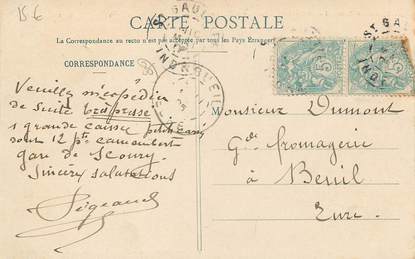 15 €
CARTE POSTALE
La Correspondance au recto n'est pas acceptée par tous les Pays Etrangers
CORRESPONDANCE
Veuillez m'expédier
de suite très pressé
1 grande caisse
dont 12 pts camembert
gare de Scoury.
Sincères salutations
Pégeaud
Monsieur Dumont
Gde fromagerie
à Breuil
Eure
ST GAU
INDRE